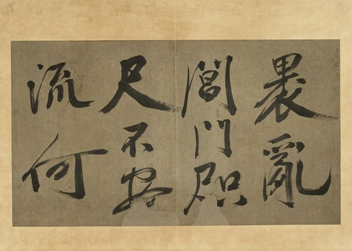 亂
閶門咫
尺不
流何